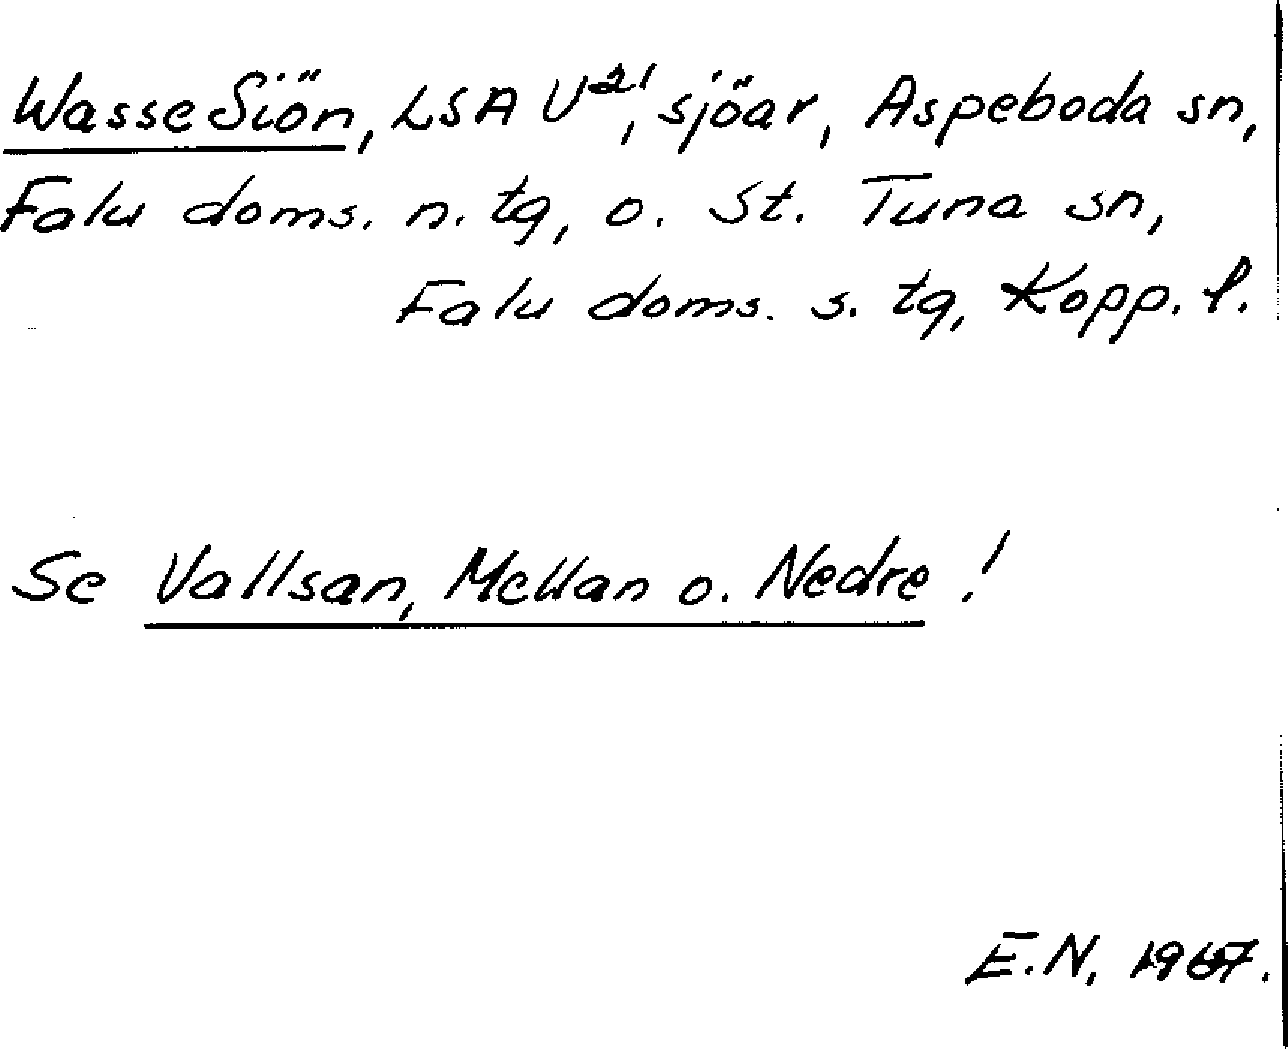 Wasse Siön, LSA U²¹, sjöar, Aspeboda sn,
Falu doms. n. tg, o. St. Tuna sn,
Falu doms. s. tg, Kopp. l.
Se Vallsan, Mellan o. Nedre !
E.N, 1967.